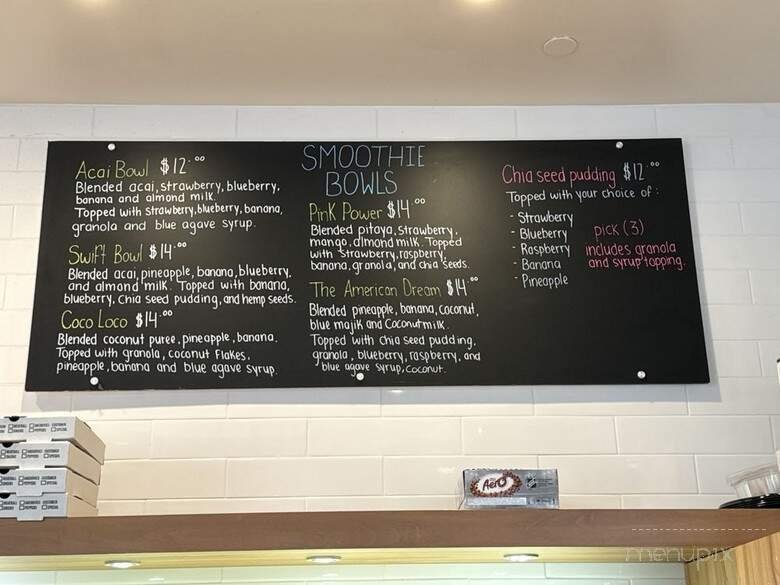 SMOOTHIE
BOWLS
Acai Bowl $12.00
Blended acai, strawberry, blueberry,
banana and almond milk.
Topped with strawberry, blueberry, banana,
granola and blue agave syrup.
Swift Bowl $14.00
Blended acai, pineapple, banana, blueberry,
and almond milk. Topped with banana,
blueberry, chia seed pudding, and hemp seeds.
Coco Loco $14.00
Blended coconut puree, pineapple, banana.
Topped with granola, coconut flakes,
pineapple, banana and blue agave syrup.
Pink Power $14.00
Blended pitaya, strawberry,
mango, almond milk. Topped
with strawberry, raspberry,
banana, granola, and chia seeds.
The American Dream $14.00
Blended pineapple, banana, coconut,
blue majik and Coconutmilk.
Topped with chia seed pudding,
granola, blueberry, raspberry, and
blue agave syrup, coconut.
Chia seed pudding $12.00
Topped with your choice of:
- Strawberry
- Blueberry
- Raspberry
- Banana
- Pineapple
pick (3)
includes granola
and syrup topping.
Aero
menupix